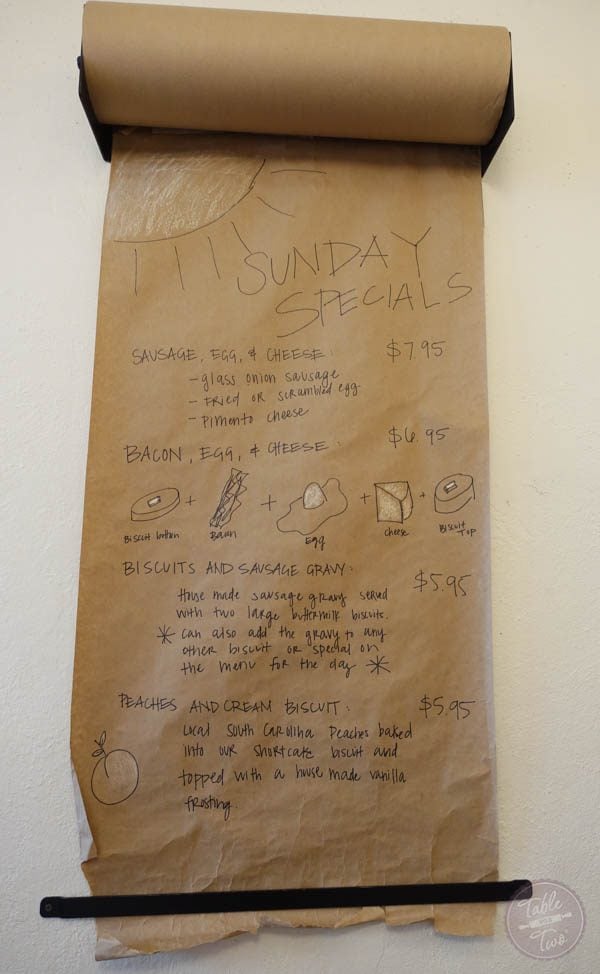 SUNDAY
SPECIALS
SAUSAGE, EGG, & CHEESE: $7.95
- glass onion sausage
- FRIED OR SCRAMBLED egg
- PIMENTO CHEESE
BACON, EGG, & CHEESE: $6.95
+ + + +
Biscuit bottom Bacon Egg cheese Biscuit TOP
BISCUITS AND SAUSAGE GRAVY: $5.95
House made sausage gravy served
with two large buttermilk biscuits.
* can also add the gravy to any
other biscuit or special on
the menu for the day *
PEACHES AND CREAM BISCUIT: $5.95
Local South Carolina Peaches baked
into our shortcake biscuit and
topped with a house made vanilla
frosting.
Table
for
Two